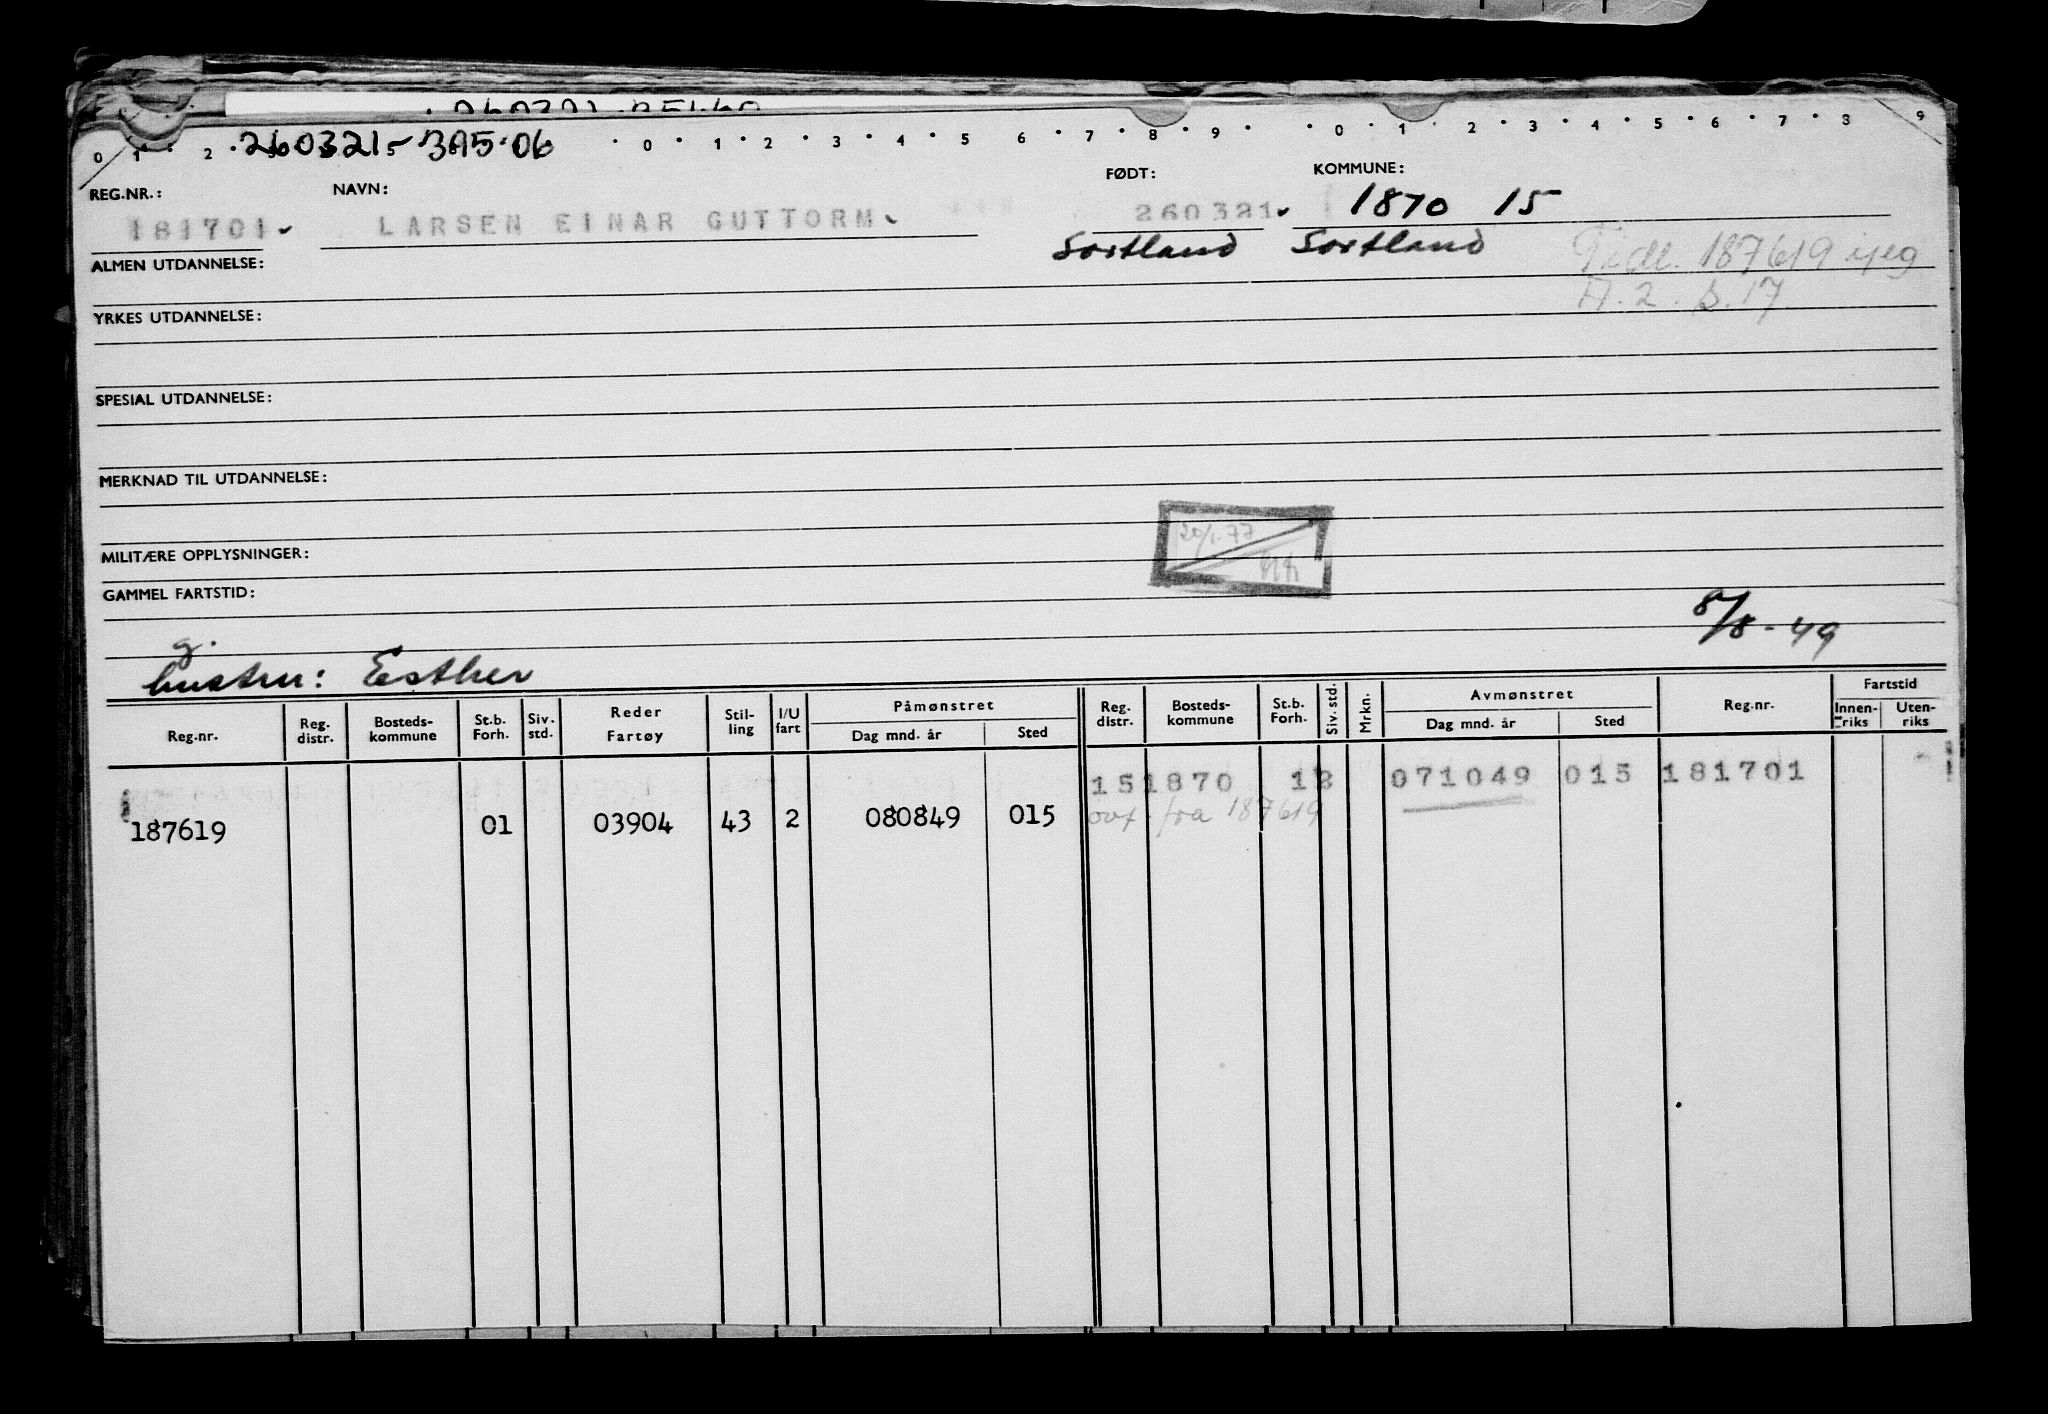 260321-395.06
0 1 2 5 0 1 2 3 4 5 6 7 8 9 0 1 2 3 4 5 6 7 8 9
REG.NR.: NAVN: FØDT: KOMMUNE:
181701 LARSEN EINAR GUTTORM 260321 1870 15
Sortland Sortland
Tidl. 187619
ALMEN UTDANNELSE:
A.2. S.17
YRKES UTDANNELSE:
SPESIAL UTDANNELSE:
MERKNAD TIL UTDANNELSE:
20/1.77
MILITÆRE OPPLYSNINGER:
GAMMEL FARTSTID:
8/8-49
g.
hustru: Esther
Reg.nr. Reg. distr. Bosteds-kommune St.b. Forh. Siv. std. Reder Fartøy Stil-ling I/U fart Påmønstret Dag mnd. år Sted Reg. distr. Bosteds-kommune St.b. Forh. Siv. std. Mrkn. Avmønstret Dag mnd. år Sted Reg.nr. Fartstid Innen-riks Uten-riks
151870 12 071049 015 181701
187619 01 03904 43 2 080849 015 fra 187619